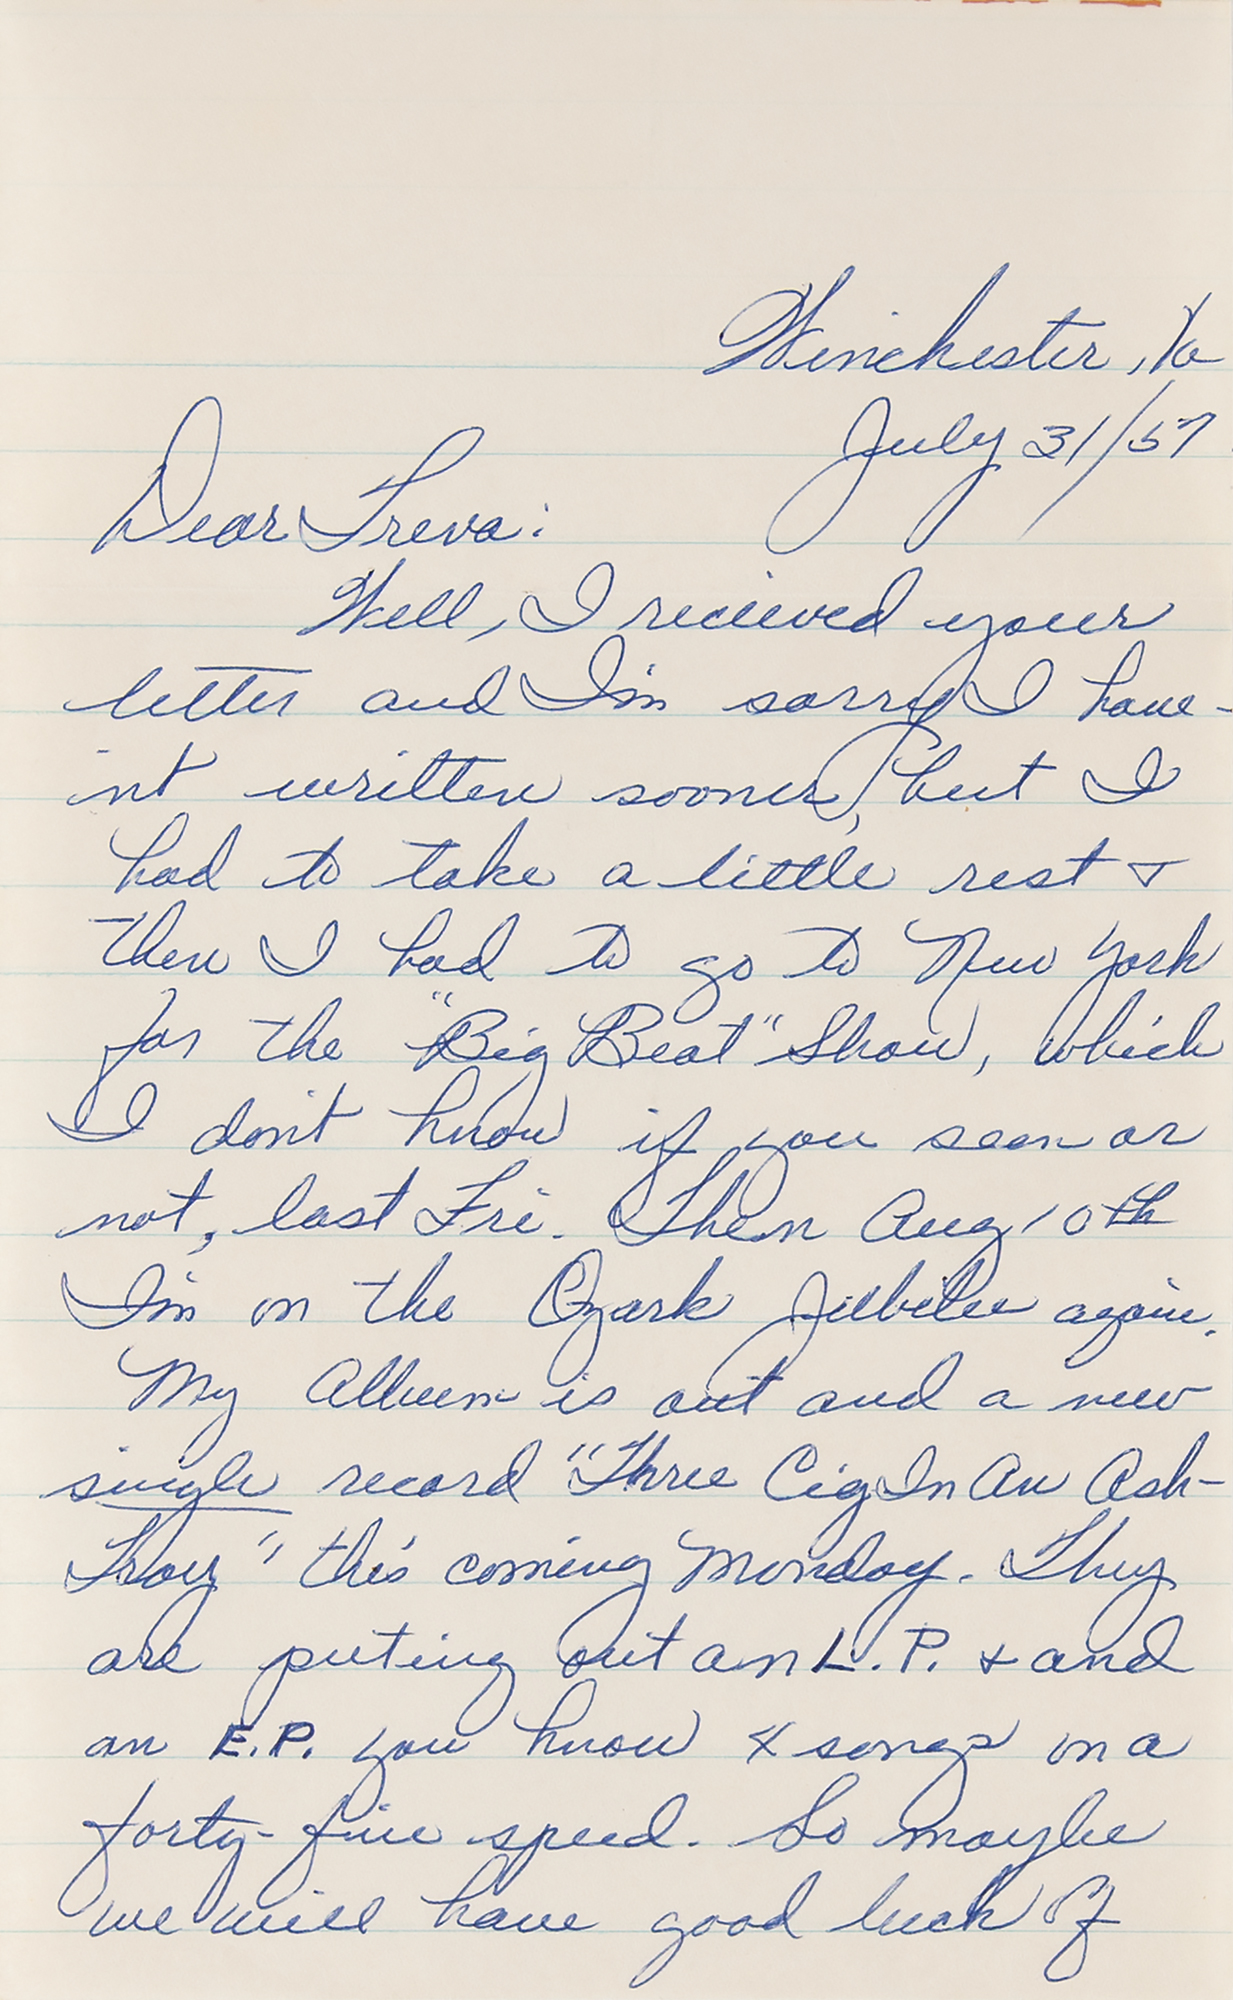 Winchester, Va
July 31/57
Dear Treva:
Well, I recieved your
letter and I'm sorry I have-
int written sooner, but I
had to take a little rest +
then I had to go to New York
for the "Big Beat" Show, which
I don't know if you seen or
not, last Fri. Then Aug 10th
I'm on the Ozark Jubilee again.
My Album is out and a new
single record "Three Cig In An Ash-
Tray" this coming Monday. They
are puting out an L.P. + and
an E.P. you know 4 songs on a
forty-five speed. So maybe
we will have good luck if